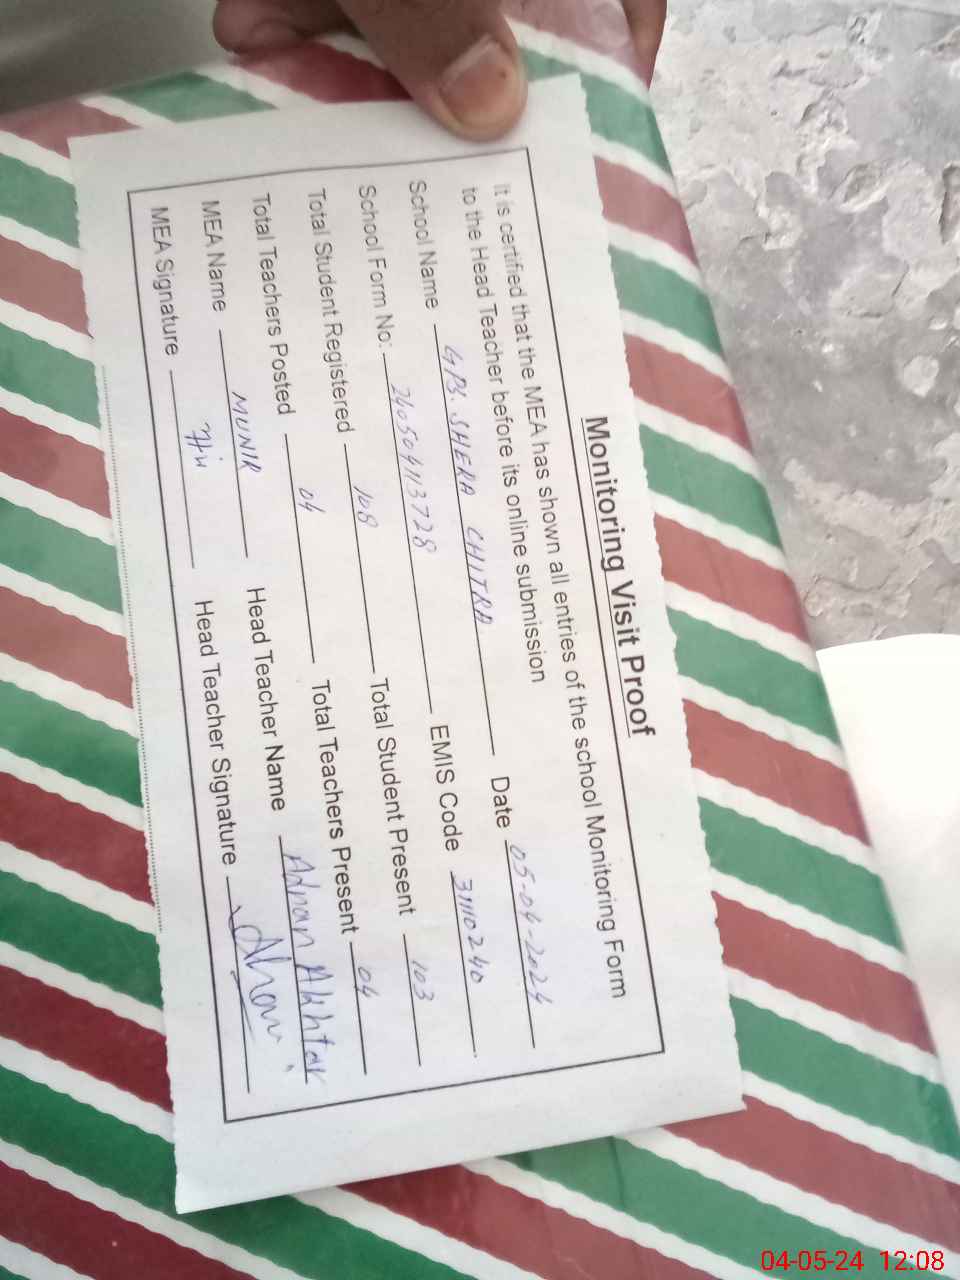 Monitoring Visit Proof
It is certified that the MEA has shown all entries of the school Monitoring Form
to the Head Teacher before its online submission
School Name GPS. SHERA CHITRA Date 05-04-2024
School Form No: 240504113728 EMIS Code 31110240
Total Student Registered 108 Total Student Present 103
Total Teachers Posted 04 Total Teachers Present 04
MEA Name MUNIR Head Teacher Name Adnan Akhtar
MEA Signature Head Teacher Signature
04-05-24 12:08